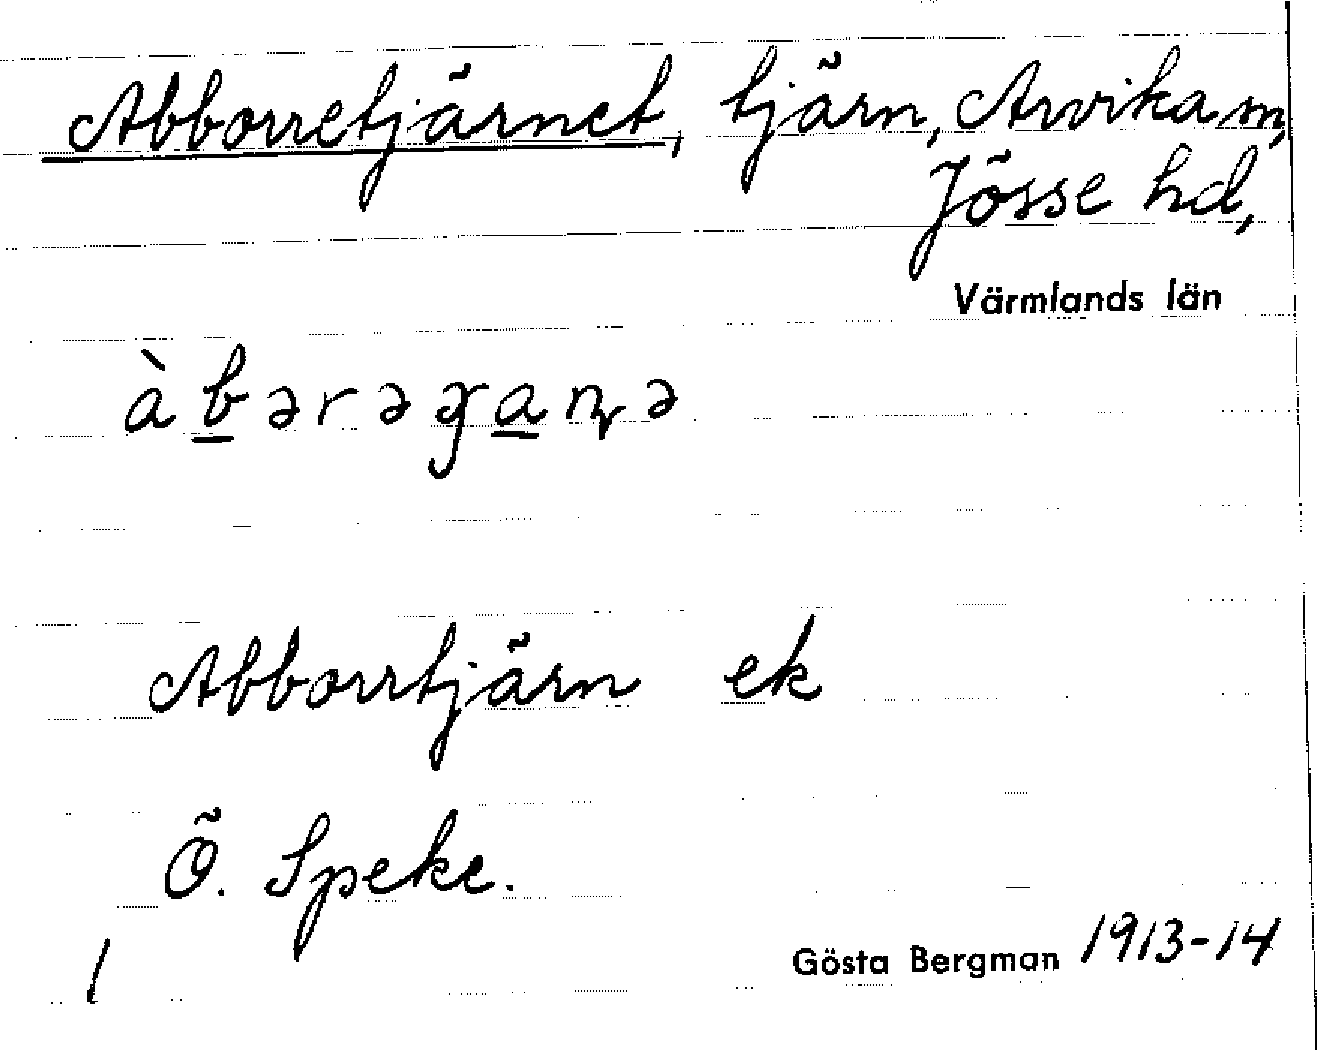 Abborretjärnet, tjärn, Arvika m,
Jösse hd,
Värmlands län
Abborrtjärn ek
Ö. Speke.
1
Gösta Bergman 1913-14